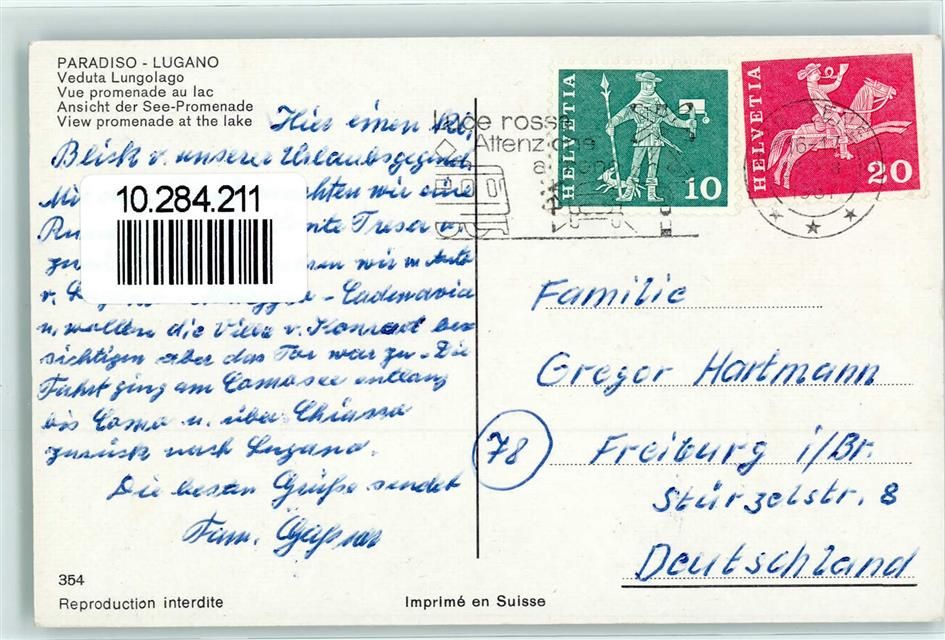 PARADISO - LUGANO
Veduta Lungolago
Vue promenade au lac
Ansicht der See-Promenade
View promenade at the lake
Hier einen kl.
Blick v. unserer Urlaubsgegend.
10.284.211
wir eine
Tresor
wir m. Auto
- Cadenavia
u. wollen die Villa v. Konrad be-
sichtigen aber das Tor war zu. Die
Fahrt ging am Comosee entlang
bis Como u. über Chiasso
zurück nach Lugano.
Die besten Grüße sendet
Fam.
luce rossa
Attenzione
HELVETIA
10
HELVETIA
20
Familie
Gregor Hartmann
78
Freiburg i/Br.
Stürzelstr. 8
Deutschland
354
Reproduction interdite
Imprimé en Suisse